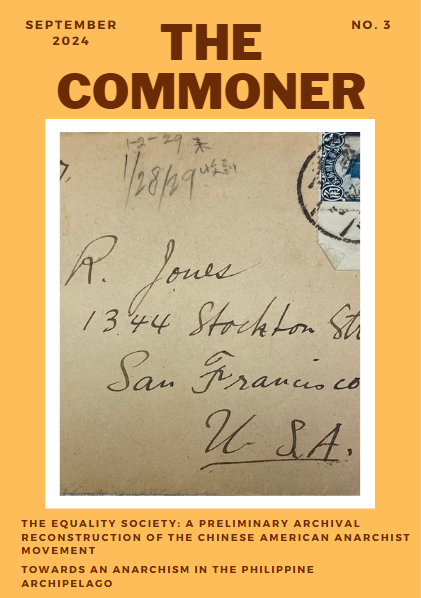 SEPTEMBER
2024
NO. 3
THE
COMMONER
1-2-29
1/28/29
R. Jones
1344 Stockton Str
San Francisco
U.S.A.
THE EQUALITY SOCIETY: A PRELIMINARY ARCHIVAL
RECONSTRUCTION OF THE CHINESE AMERICAN ANARCHIST
MOVEMENT
TOWARDS AN ANARCHISM IN THE PHILIPPINE
ARCHIPELAGO